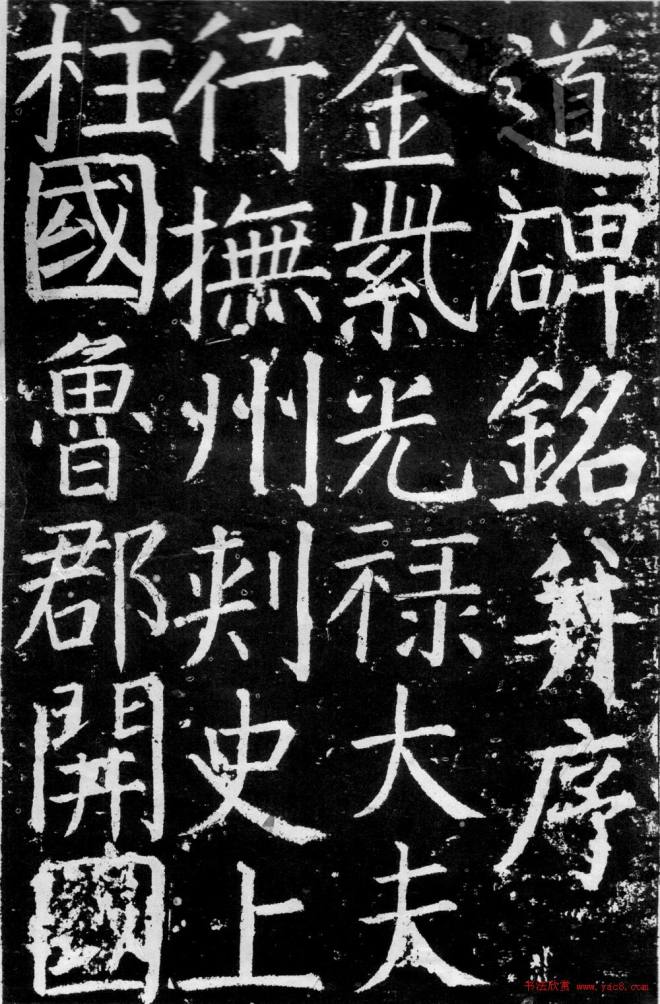 道碑銘并序
金紫光禄大夫
行撫州刺史上
柱國魯郡開國
书法欣赏 www.yac8.com